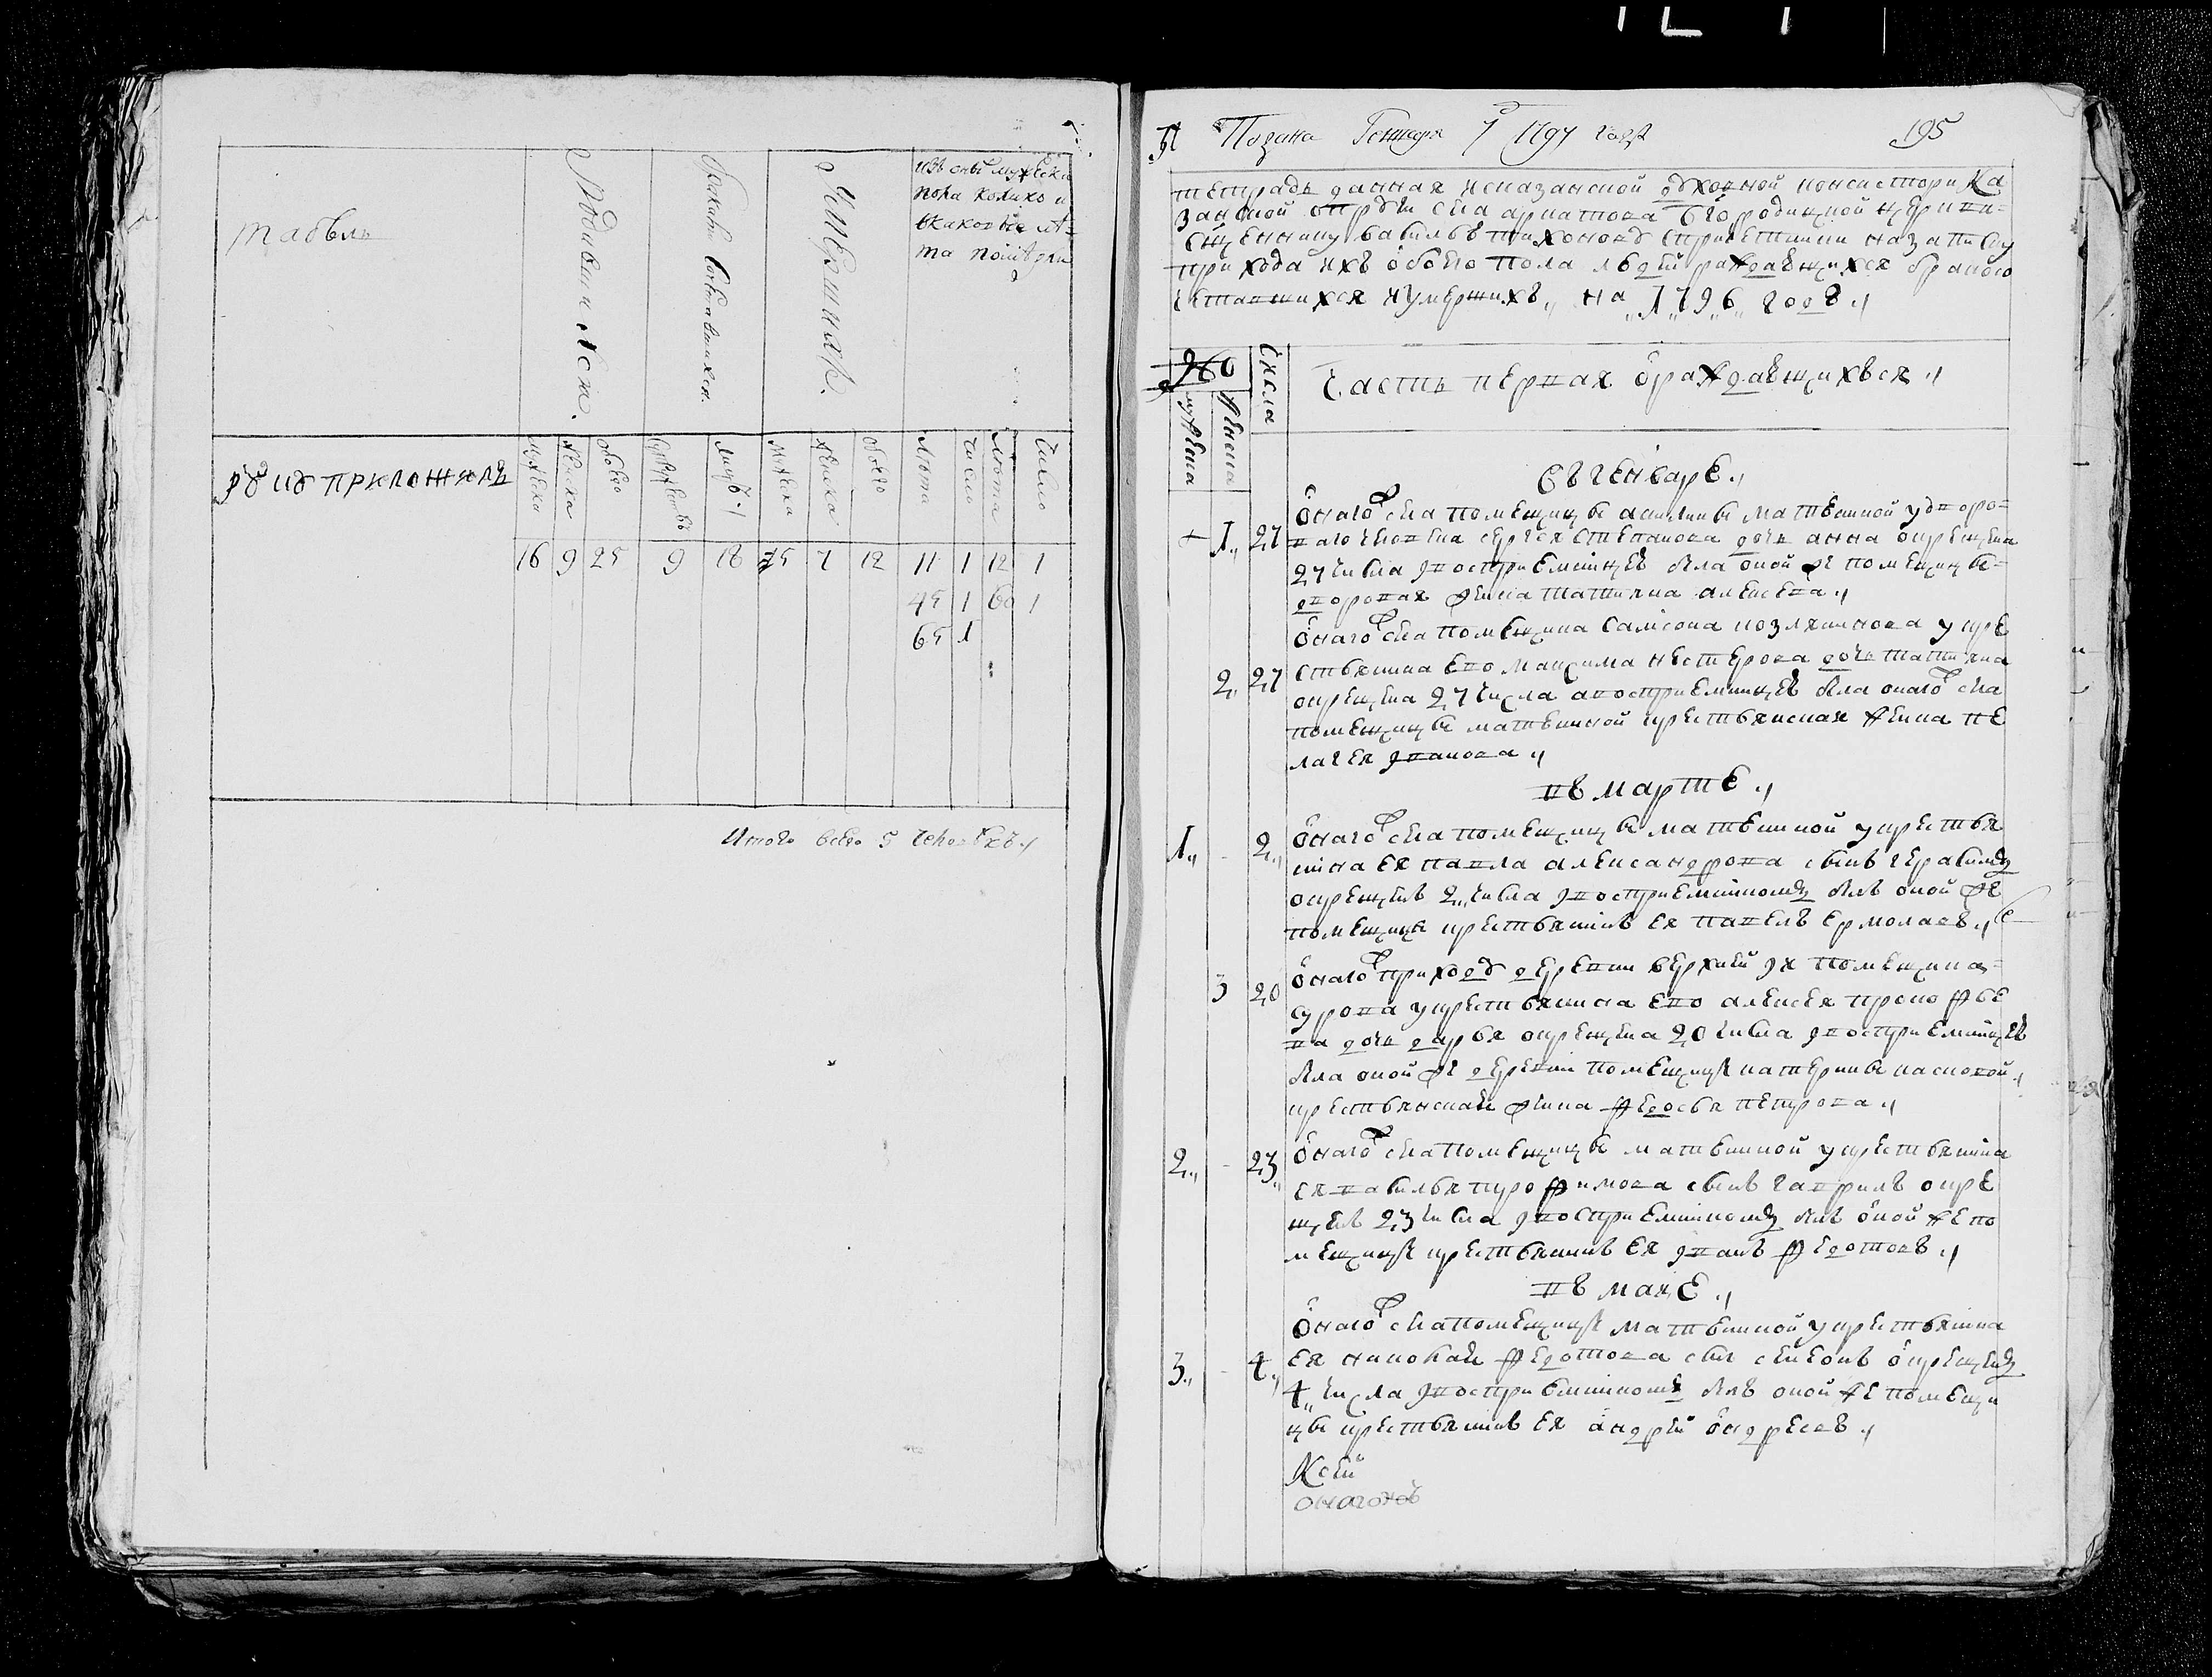 табель
Родившихся.
Браком Сочетавшихся.
Умерших.
изъ оныхъ мужеска
пола колико и
вкаковые лѣ=
та помѣрли
Мужеска
Женска
обоего
Супружествъ
лицъ
Мужеска
Женска
обоего
Лѣта
Число
Лѣта
Число
руку приложилъ
16 9 25 9 18 5 7 12 11 1 12 1
45 1 60 1
65 1
Итого всего 5 человѣкъ
Подана Генваря 7 1797 года
195
тетрадь данная исказанской духовной консистории ка
занской округи села арнатова Богородицкой церкви
священнику василью тихонову спричетники на записку
прихода ихъ обоего пола людей раждающихся браком
сетавшихся иумершихъ, на 1796 годъ
260
мужеска
женска
Числа
Часть первая ораждающихъся
Въ Генваре
1 27
онагожъ села помещицы акилины матвеиной удворо=
ваго человека сергея степанова дочь анна окрещена
27 числа ивоспрыемницею была оной же помещицы
дворовая жена татияна алексева
2 27
онагожъ села помещика самсона козляинова у кре
стьянина ево максима нестерова дочь татияна
окрещена 27 числа авоспрыемницею была онагожъ села
помещицы матвеиной крестьянская жена пе
лагея иванова
въ марте
1 2
онагожъ села помещицы матвеиной укрестья
нина ея павла александрова сынъ герасимъ
окрещенъ 2 числа ивоспрыемникомъ былъ оной же
помещицы крестьянинъ ея павелъ ермолаевъ
3 20
онагожъ приходу деревни верхней ия помещика
сурова укрестьянина ево алексея прокофье
ва дочь дарья окрещена 20 числа ивоспрыемницею
была оной же деревни помещицы катерины насновой
крестьянская жена федосья петрова
2 23
онагожъ села помещицы матвеиной укрестьянина
ея василья трофимова сынъ гаврилъ окре
щенъ 23 числа ивоспрыемникомъ былъ оной же по
мещицы крестьянинъ ея иванъ федотовъ
въ маие
3 4
онагожъ села помещицы матвеиной укрестьянина
ея николая федотова сынъ симеонъ окрещенъ
4 числа ивоспрыемникомъ былъ оной же помещи
цы крестьянинъ ея андрей андреевъ
Ксей